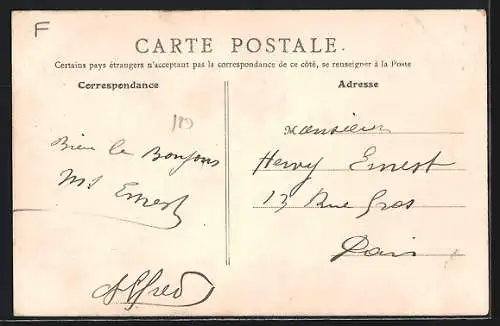 F
CARTE POSTALE.
Certains pays étrangers n'acceptent pas la correspondance de ce côté, se renseigner à la Poste
Correspondance
Adresse
Bien le Bonjour
Ernest
Alfred
Monsieur
Ernest
13 Rue Gros
Paris